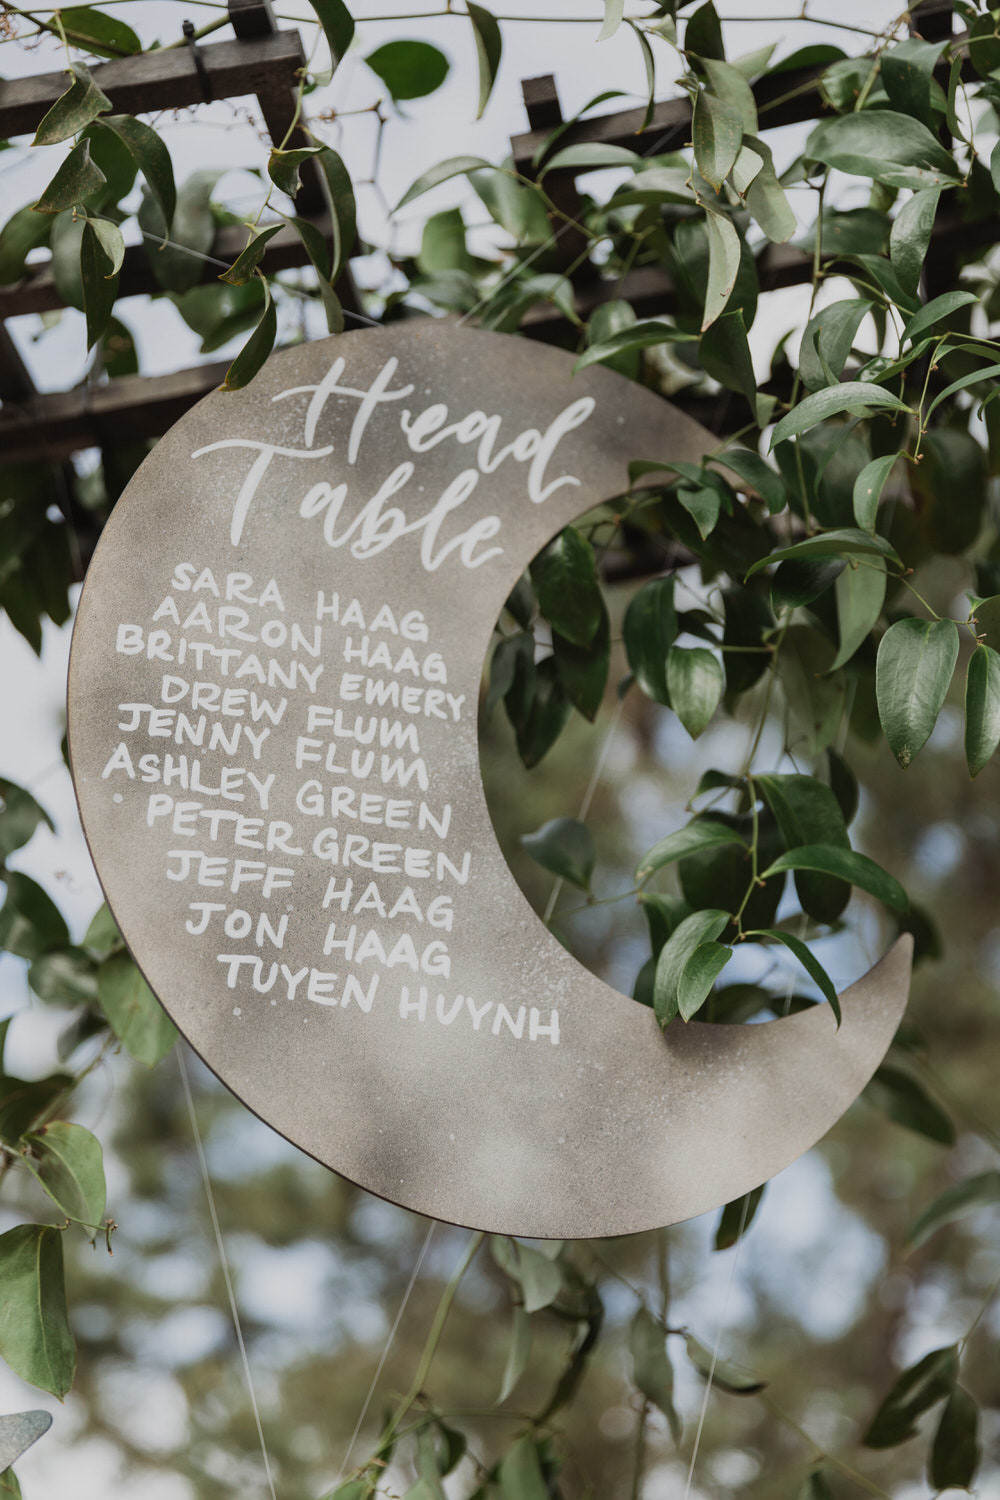 Head
Table
SARA HAAG
AARON HAAG
BRITTANY EMERY
DREW FLUM
JENNY FLUM
ASHLEY GREEN
PETER GREEN
JEFF HAAG
JON HAAG
TUYEN HUYNH